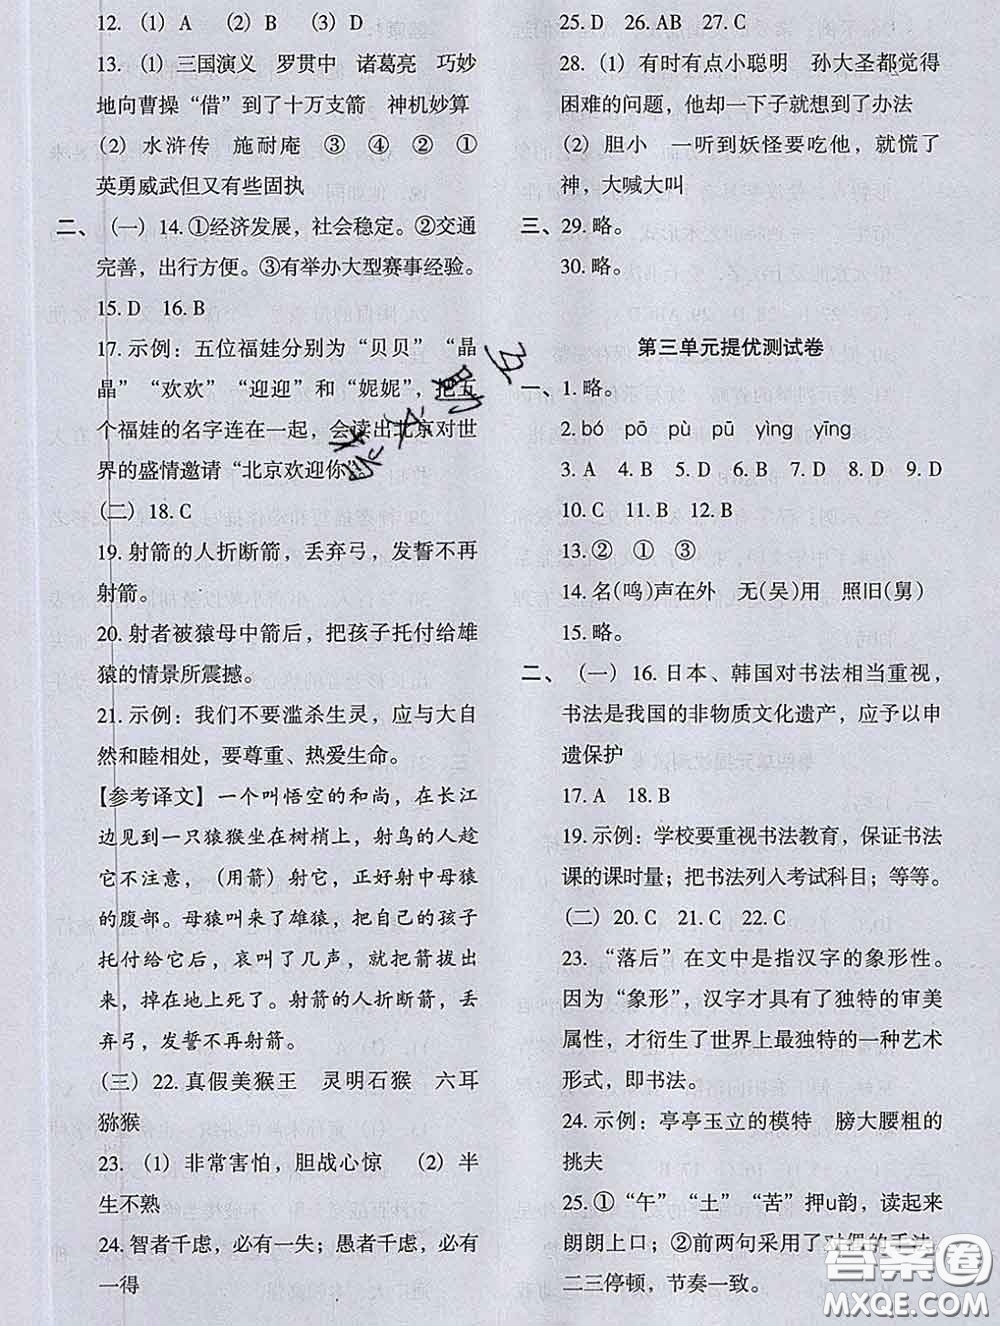 12. (1) A (2) B (3) D
13. (1) 三国演义 罗贯中 诸葛亮 巧妙
地向曹操“借”到了十万支箭 神机妙算
(2) 水浒传 施耐庵 ③ ④ ② ①
英勇威武但又有些固执
二、(一) 14. ①经济发展，社会稳定。②交通
完善，出行方便。③有举办大型赛事经验。
15. D 16. B
17. 示例：五位福娃分别为“贝贝”“晶
晶”“欢欢”“迎迎”和“妮妮”，把五
个福娃的名字连在一起，会读出北京对世
界的盛情邀请“北京欢迎你”。
(二) 18. C
19. 射箭的人折断箭，丢弃弓，发誓不再
射箭。
20. 射者被猿母中箭后，把孩子托付给雄
猿的情景所震撼。
21. 示例：我们不要滥杀生灵，应与大自
然和睦相处，要尊重、热爱生命。
【参考译文】一个叫悟空的和尚，在长江
边见到一只猿猴坐在树梢上，射鸟的人趁
它不注意，（用箭）射它，正好射中母猿
的腹部。母猿叫来了雄猿，把自己的孩子
托付给它后，哀叫了几声，就把箭拔出
来，掉在地上死了。射箭的人折断箭，丢
弃弓，发誓不再射箭。
(三) 22. 真假美猴王 灵明石猴 六耳
猕猴
23. (1) 非常害怕，胆战心惊 (2) 半
生不熟
24. 智者千虑，必有一失；愚者千虑，必有
一得
25. D 26. AB 27. C
28. (1) 有时有点小聪明 孙大圣都觉得
困难的问题，他却一下子就想到了办法
(2) 胆小 一听到妖怪要吃他，就慌了
神，大喊大叫
三、29. 略。
30. 略。
第三单元提优测试卷
一、1. 略。
2. bó pō pù pū yìng yīng
3. A 4. D 5. D 6. D 7. B 8. D 9. D
10. C 11. B 12. B
13. ② ① ③
14. 名(鸣)声在外 无(吴)用 照旧(舅)
15. 略。
二、(一) 16. 日本、韩国对书法相当重视，
书法是我国的非物质文化遗产，应予以申
遗保护
17. A 18. B
19. 示例：学校要重视书法教育，保证书法
课的课时量；把书法列入考试科目；等等。
(二) 20. C 21. C 22. C
23. “落后”在文中是指汉字的象形性。
因为“象形”，汉字才具有了独特的审美
属性，才衍生了世界上最独特的一种艺术
形式，即书法。
24. 示例：亭亭玉立的模特 膀大腰粗的
挑夫
25. ①“午”“土”“苦”押u韵，读起来
朗朗上口；②前两句采用了对偶的手法
二三停顿，节奏一致。
答案圈
MXQE.COM